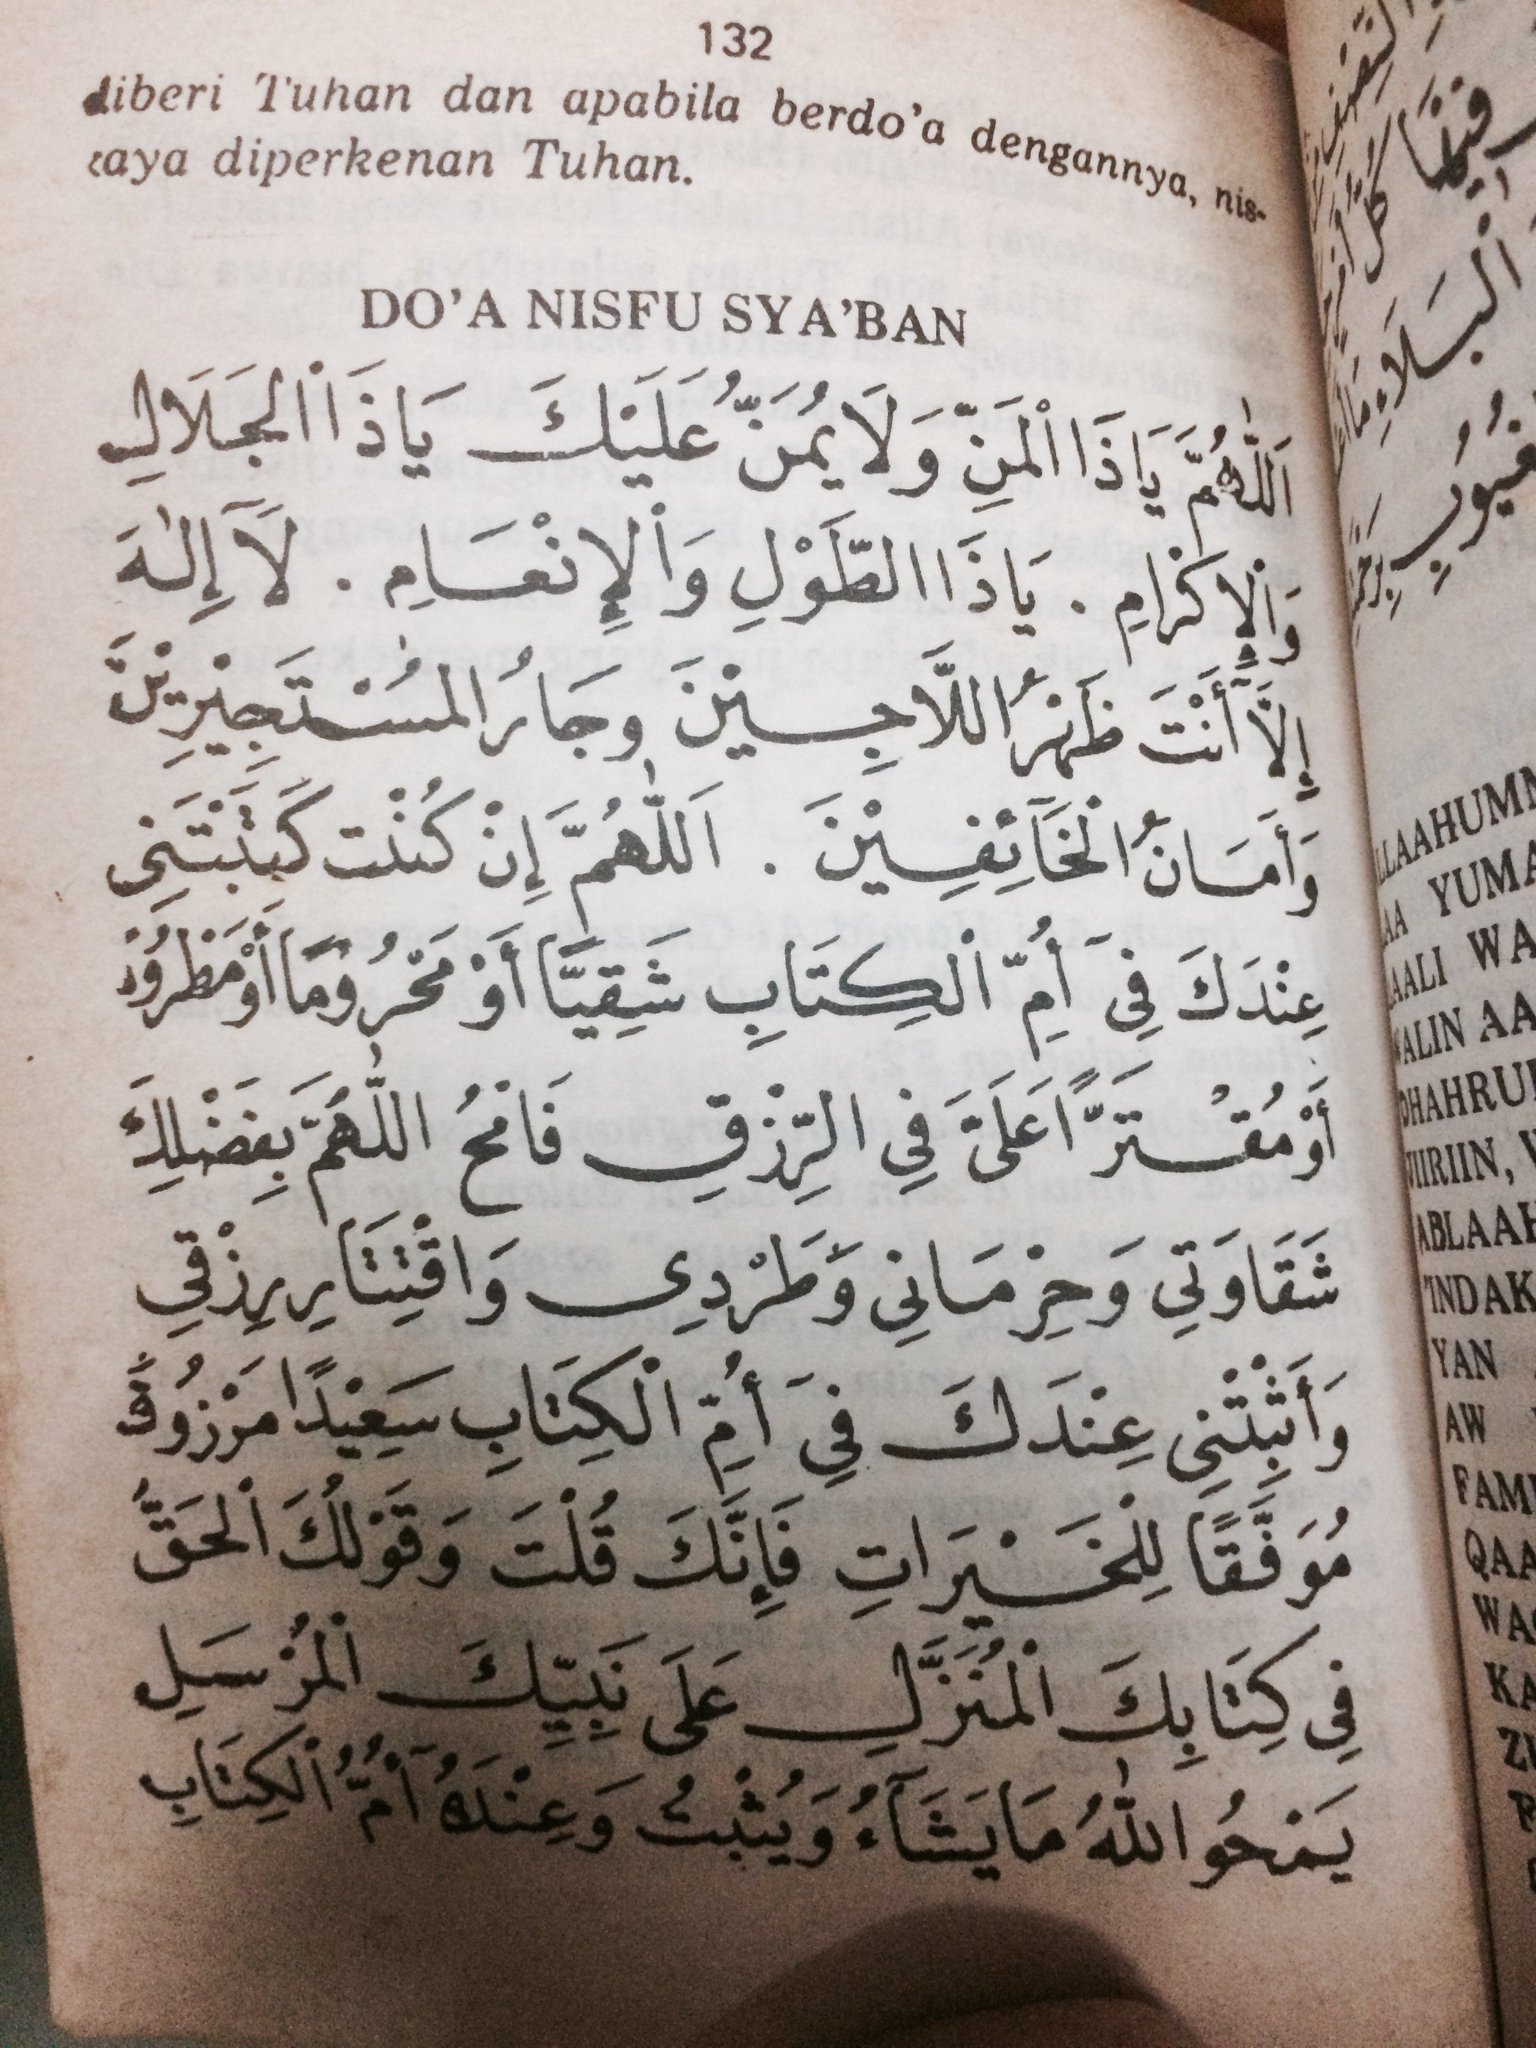 132
diberi Tuhan dan apabila berdo'a dengannya, nis-
caya diperkenan Tuhan.
DO'A NISFU SYA'BAN
اَللّٰهُمَّ يَاذَا الْمَنِّ وَلَا يُمَنُّ عَلَيْكَ يَاذَا الْجَلَالِ
وَالْإِكْرَامِ . يَاذَا الطَّوْلِ وَالْإِنْعَامِ . لَآ إِلٰهَ
إِلَّآ أَنْتَ ظَهْرُ اللَّاجِيْنَ وَجَارُ الْمُسْتَجِيْرِيْنَ
وَأَمَانُ الْخَآئِفِيْنَ . اَللّٰهُمَّ إِنْ كُنْت كَتَبْتَنِي
عِنْدَكَ فِيَ أُمِّ الْكِتَابِ شَقِيًّا أَوْ مَحْرُوْمًا أَوْ
أَوْ مُقْتَرًّا عَلَيَّ فِي الرِّزْقِ فَامْحُ اللّٰهُمَّ بِفَضْلِكَ
شَقَاوَتِي وَحِرْمَانِي وَطَرْدِي وَاقْتِتَارِ رِزْقِي
وَأَثْبِتْنِي عِنْدَكَ فِيَ أُمِّ الْكِتَابِ سَعِيْدًا
مُوَفَّقًا لِلْخَيْرَاتِ فَإِنَّكَ قُلْتَ وَقَوْلُكَ الْحَقُّ
فِي كِتَابِكَ الْمُنَزَّلِ عَلَى نَبِيِّكَ الْمُرْسَلِ
يَمْحُوا اللّٰهُ مَا يَشَآءُ وَيُثْبِتُ وَعِنْدَهُ أُمُّ الْكِتَابِ
YUMA
WA
YAN
AW